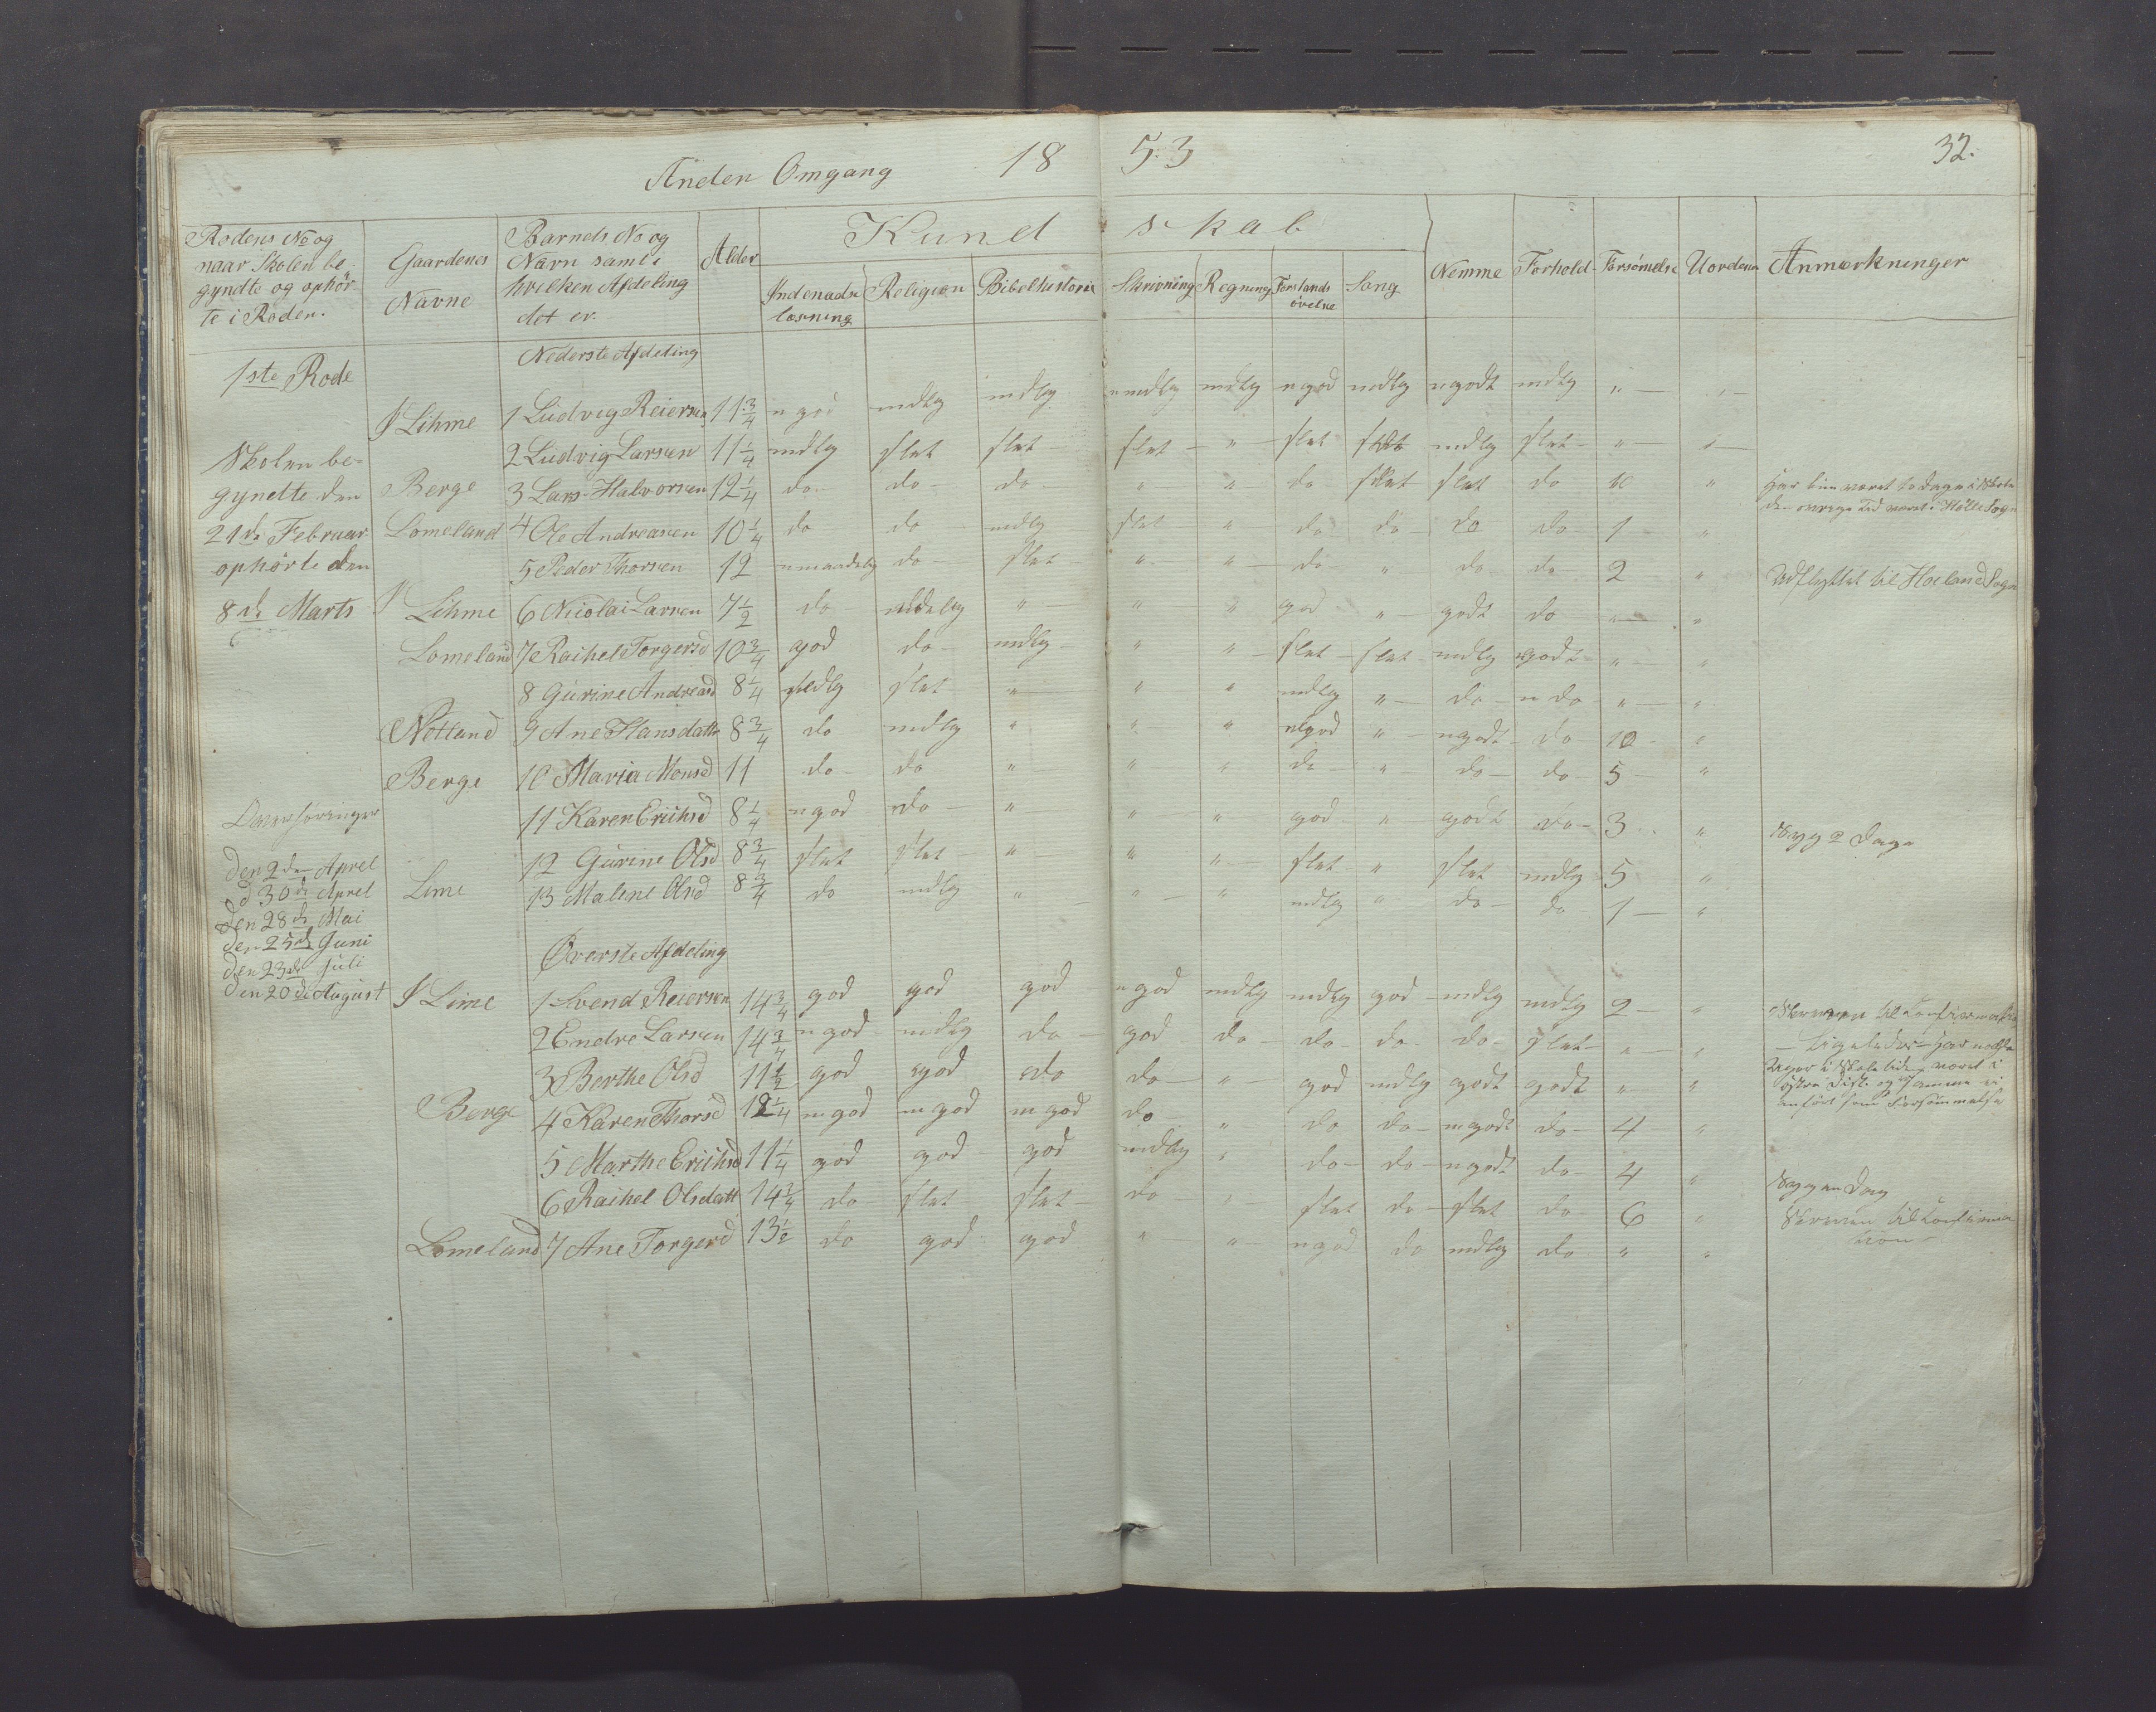 Anden Omgang 18 53 32.
Rodens No og naar Skolen be- gyndte og ophör- te i Roden.
Gaardenes Navne
Barnets No og Navn samt i hvilken Afdeling det er.
Alder
Kund skab
Indenads læsning Religion Bibelhistorie Skrivning Regning Forstands övelse Sang
Nemme Forhold Forsömelse Uorden Anmærkninger
1ste Rode
Nederste Afdeling
Lihme 1 Ludvig Reiersen 11 3/4 n god mdlg mdlg n mdlg mdlg n god mdlg n godt mdlg " "
2 Ludvig Larsen 11 1/4 mdlg slet slet slet " slet slet mdlg slet " "
Berge 3 Lars Halvorsen 12 1/4 do do do " " do slet slet do "
Har kun været to Dage i Skole
den övrige Tid været i Hölle Sogn
Lomeland 4 Ole Andreasen 10 1/4 do do mdlg slet " do do do do 1 "
5 Peder Thorsen 12 nmaadelig do slet " " do " do do 2 " Udflyttet til Höeland Sogn
Lihme 6 Nicolai Larsen 7 1/2 do mdlg " " " god " godt do " "
Lomeland 7 Rachel Torgersd 10 3/4 god do mdlg " " slet slet mdlg godt " "
8 Gurine Andreasd 8 1/4 mdlg slet " " " mdlg " do n do " "
Nötland 9 Ane Hansdattr 8 3/4 do mdlg " " " n god " n godt do 10 "
Berge 10 Maria Monsd 11 do do " " " do " do do 5 "
11 Karen Erichsd 8 1/4 n god do " " " god " godt do 3 " Syg 2 Dage
12 Gurine Olsd 8 3/4 slet slet " " " slet " slet mdlg 5 "
Lime 13 Maline Olsd 8 3/4 do mdlg " " " mdlg " do do 1 "
Skolen be-
gyndte den
21de Februar
ophörte den
8de Marts
den 2den Aprel
d 30de Aprel
den 28de Mai
den 25de Juni
den 23de Juli
den 20de August
Øverste Afdeling
Lime 1 Svend Reiersen 14 3/4 god god god n god mdlg mdlg god mdlg mdlg 2 "
2 Endre Larsen 14 3/4 n god mdlg do god do do do do slet " "
3 Berthe Olsd 11 1/2 god god do do " god mdlg godt godt " "
Ligeledes Har
Uger i Skoletiden været i
östre Distr og Samme ei
anfört som Forsömmelse
Berge 4 Karen Thorsd 12 1/4 m god m god m god do " do do m godt do 4 "
5 Marthe Erichsd 11 1/4 god god god mdlg " do do n godt do 4 " Syg en Dag
6 Rachel Olsdatt 14 3/4 do slet slet do " slet do slet do 6 "
Lomeland 7 Ane Torgersd 13 1/2 do god god " " n god do mdlg do " "